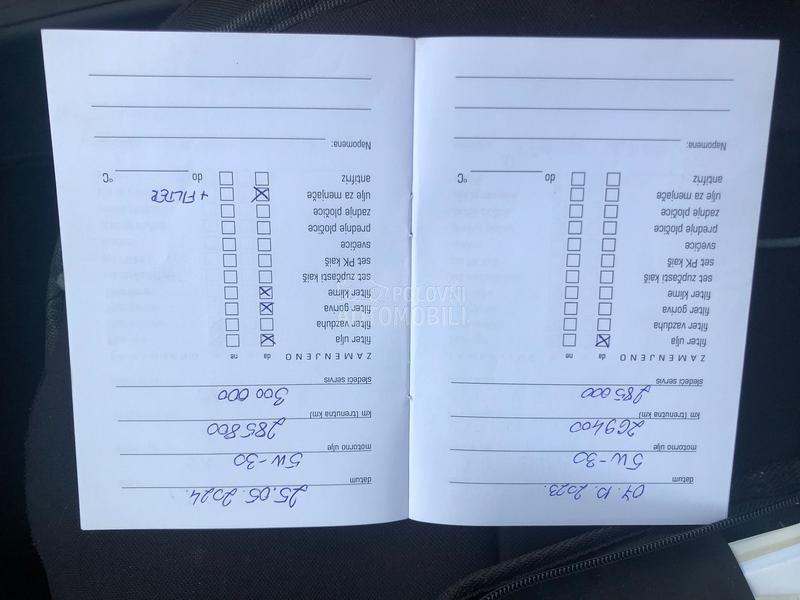 datum 07.10.2023.
motorno ulje 5W-30
km (trenutna km) 269400
sledeći servis 285000
ZAMENJENO da ne
filter ulja
filter vazduha
filter goriva
filter klime
set zupčasti kaiš
set PK kaiš
svećice
prednje pločice
zadnje pločice
ulje za menjače
antifriz do °C
Napomena:
datum 25.05.2024.
motorno ulje 5W-30
km (trenutna km) 285800
sledeći servis 300 000
ZAMENJENO da ne
filter ulja
filter vazduha
filter goriva
filter klime
set zupčasti kaiš
set PK kaiš
svećice
prednje pločice
zadnje pločice
ulje za menjače + FILTER
antifriz do °C
Napomena:
POLOVNI
AUTOMOBILI